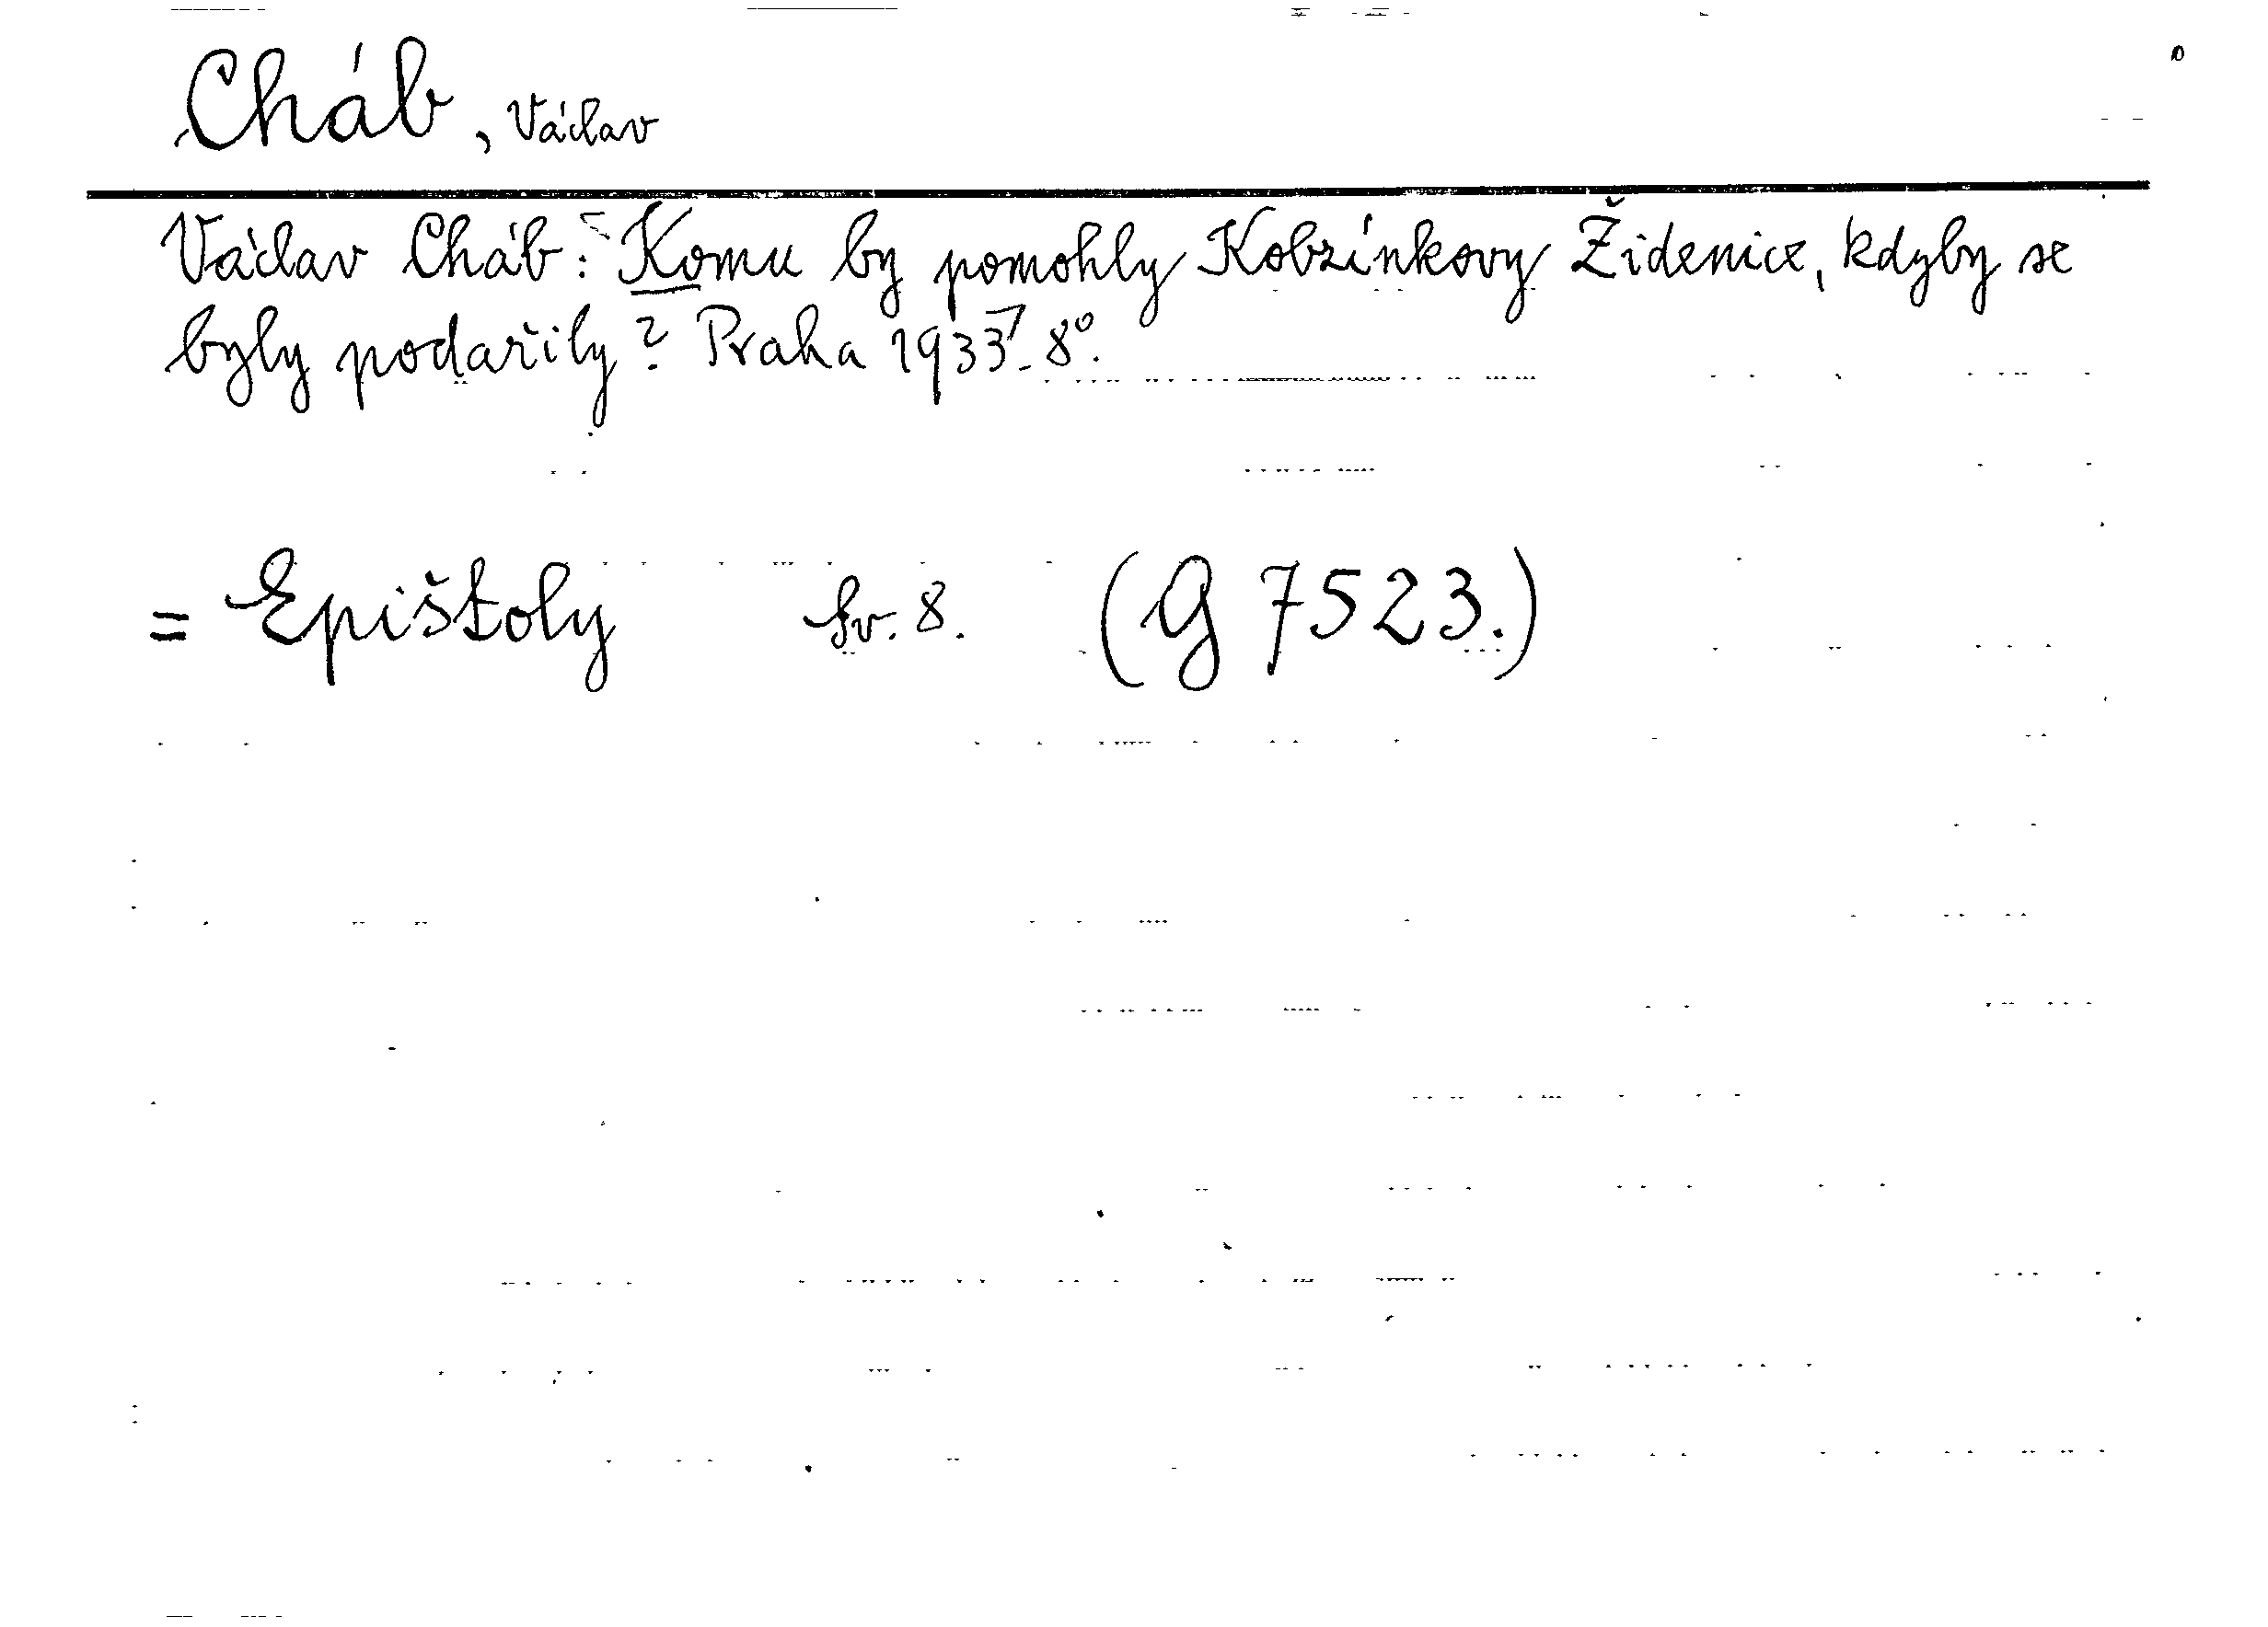 Cháb, Václav
Václav Cháb: Komu by pomohly Kobzínkovy Židenice, kdyby se
byly podařily? Praha 1933. 8°.
= Epištoly Sv. 8. (G 7523.)